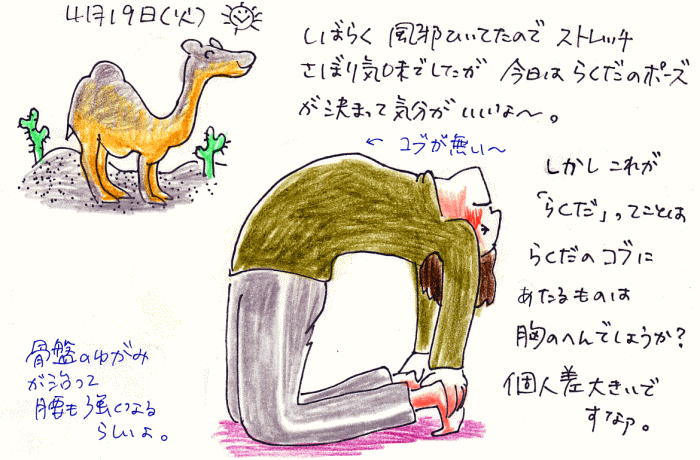 4月19日(火)
しばらく 風邪ひいてたので ストレッチ
さぼり気味でしたが 今日は らくだのポーズ
が決まって 気分がいいよ〜。
← コブが無い〜
しかし これが
「らくだ」ってことは
らくだの コブに
あたるものは
胸のへんでしょうか?
個人差大きいで
すなァ。
骨盤のゆがみ
が治って
腰も強くなる
らしいよ。